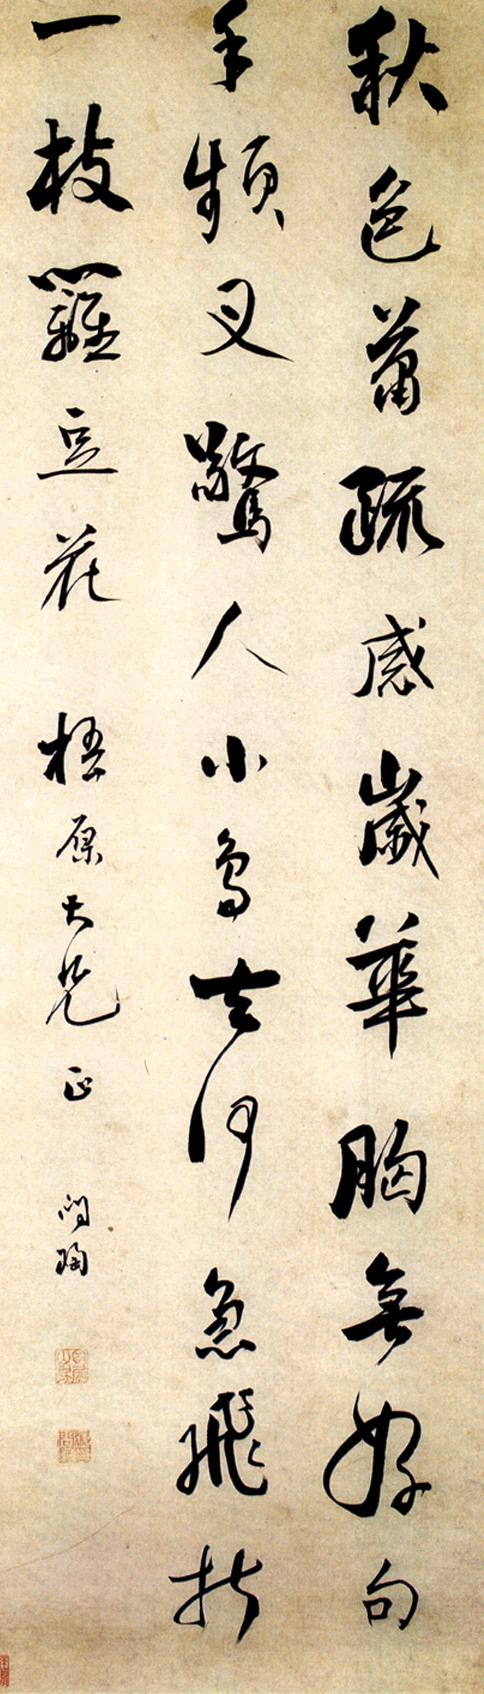 秋色蕭疏感歲華胸無好句
手頻叉驚人小鳥去何急飛折
一枝籬豆花 梧原大兄正 問陶